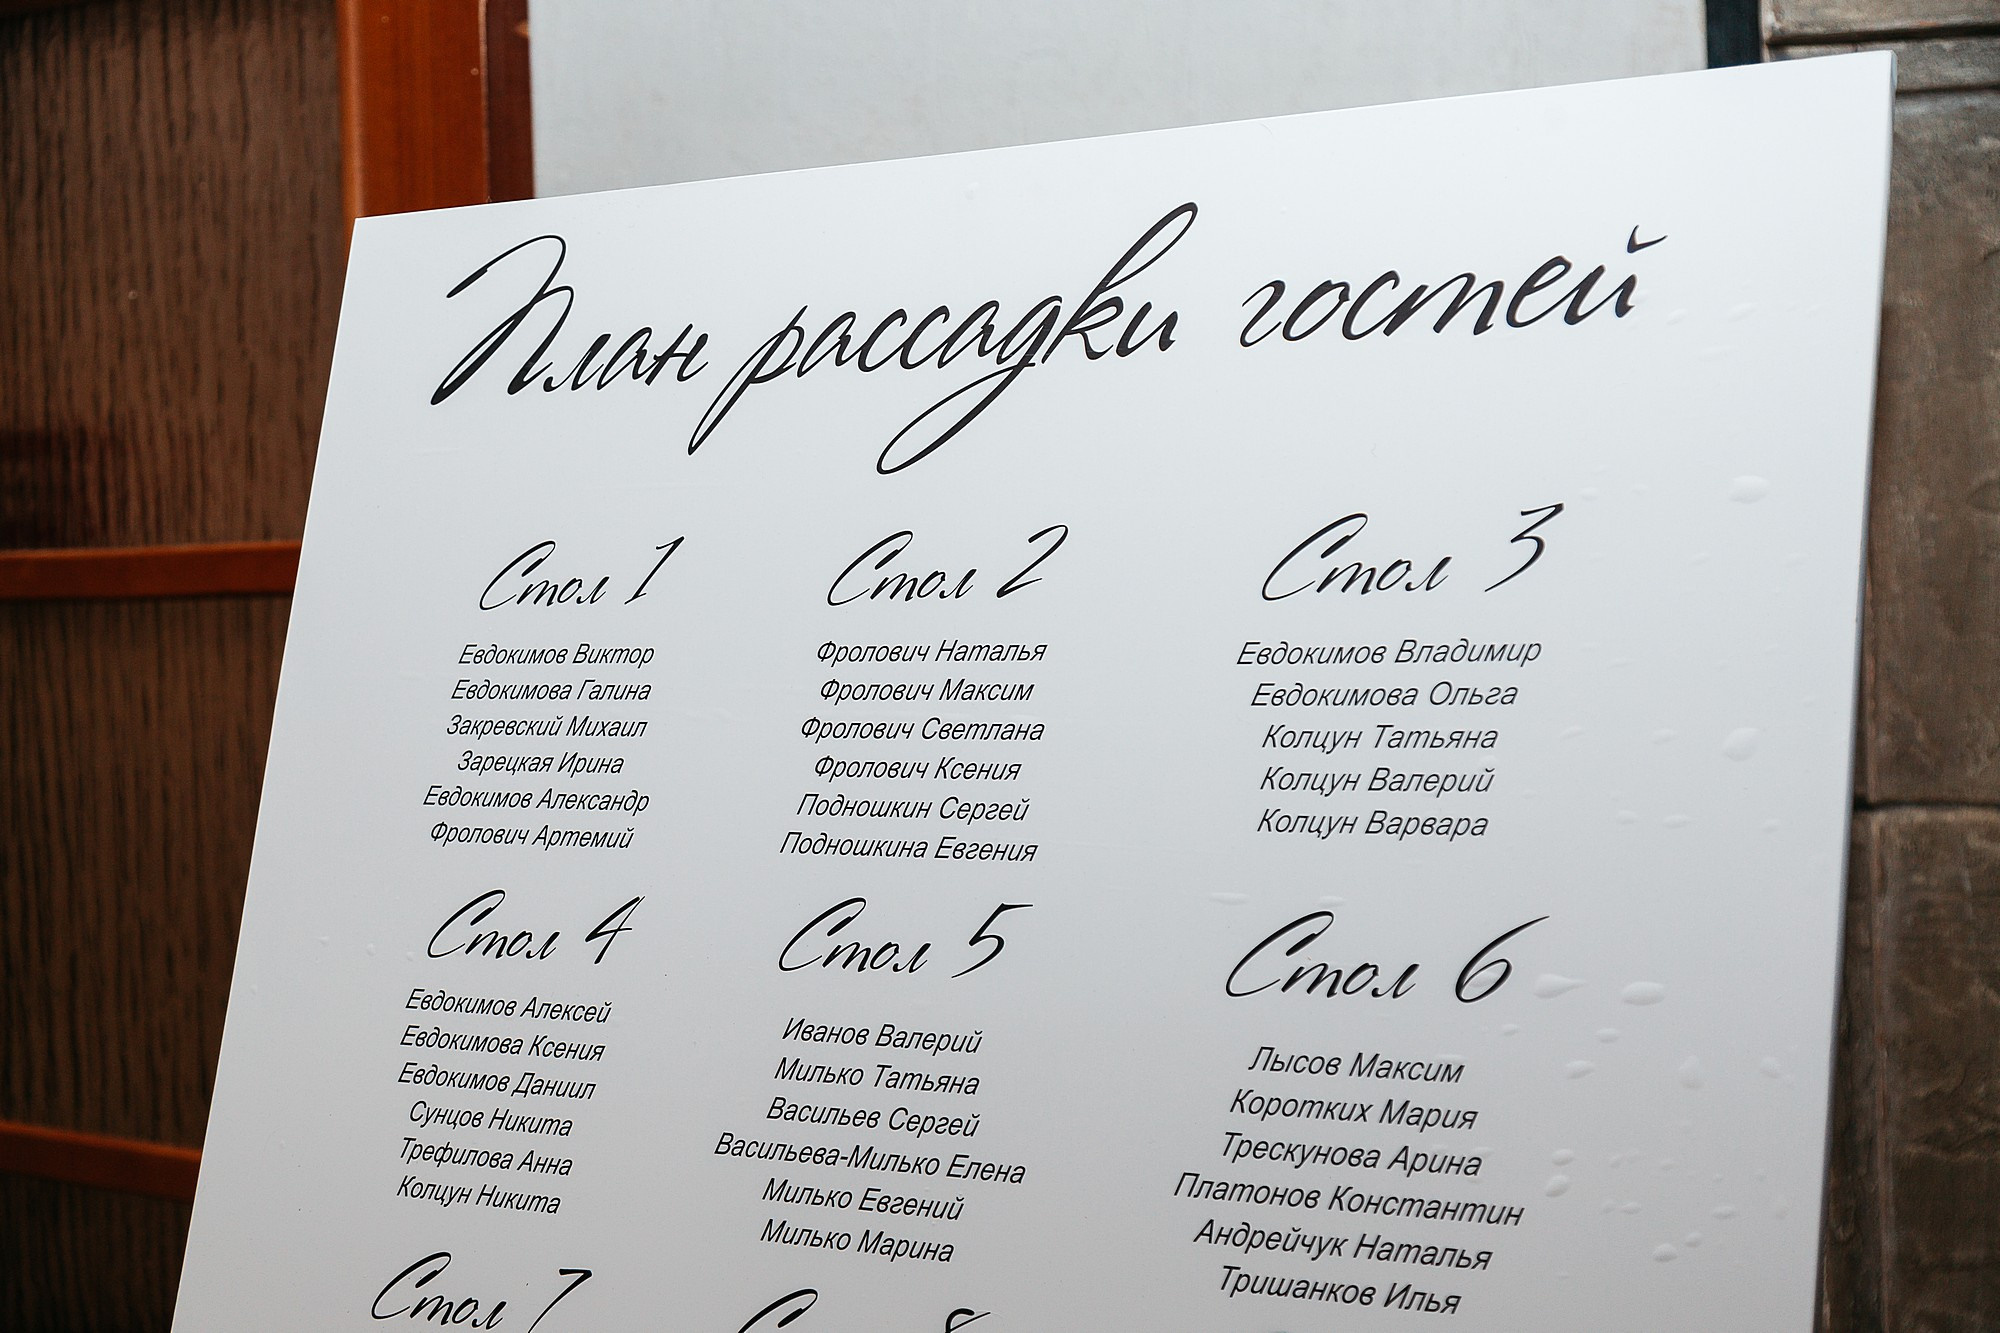 План рассадки гостей
Стол 1
Евдокимов Виктор
Евдокимова Галина
Закревский Михаил
Зарецкая Ирина
Евдокимов Александр
Фролович Артемий
Стол 2
Фролович Наталья
Фролович Максим
Фролович Светлана
Фролович Ксения
Подношкин Сергей
Подношкина Евгения
Стол 3
Евдокимов Владимир
Евдокимова Ольга
Колцун Татьяна
Колцун Валерий
Колцун Варвара
Стол 4
Евдокимов Алексей
Евдокимова Ксения
Евдокимов Даниил
Сунцов Никита
Трефилова Анна
Колцун Никита
Стол 5
Иванов Валерий
Милько Татьяна
Васильев Сергей
Васильева-Милько Елена
Милько Евгений
Милько Марина
Стол 6
Лысов Максим
Коротких Мария
Трескунова Арина
Платонов Константин
Андрейчук Наталья
Тришанков Илья
Стол 7